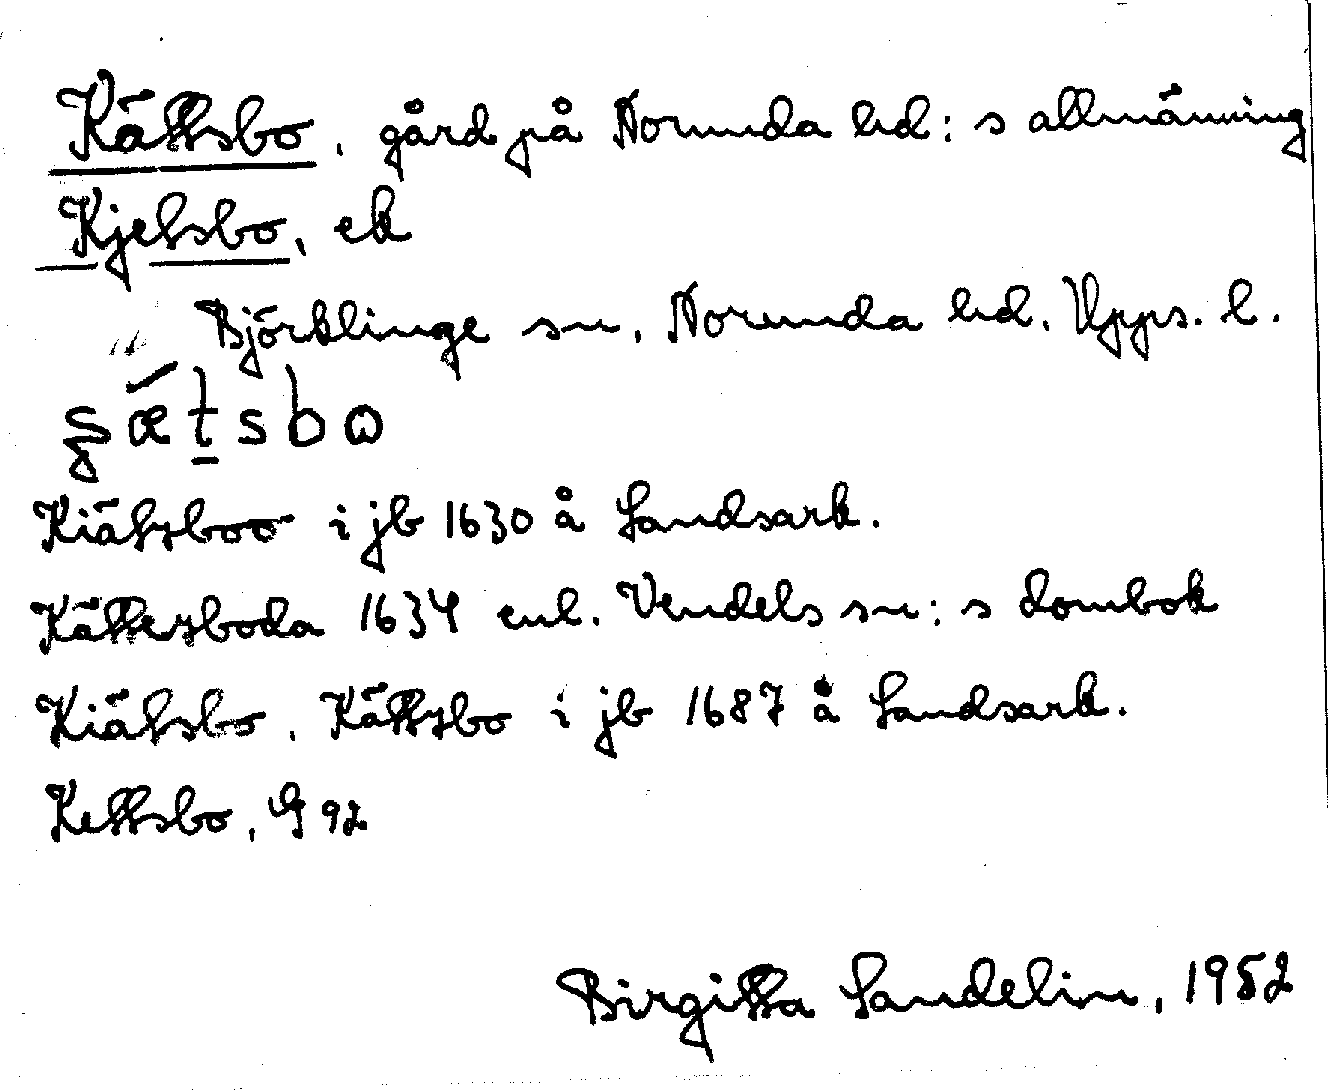 Kättsbo, gård på Norunda hd:s allmänning
Kjetsbo, ek
Björklinge sn, Norunda hd. Upps. l.
ʂǽt̠sbω
Kiätzboo i jb 1630 å Landsark.
Kättezboda 1634 enl. Vendels sn:s dombok
Kiätsbo, Kättzbo i jb 1687 å Landsark.
Kettsbo, G 92
Birgitta Landelin, 1952